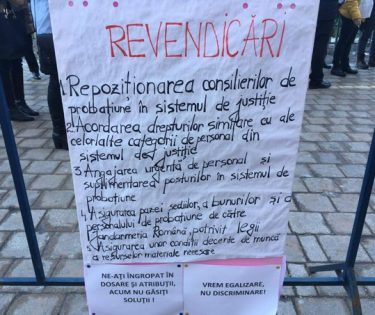 REVENDICĂRI
1. Repoziționarea consilierilor de
probațiune în sistemul de justiție
2. Acordarea drepturilor similare cu ale
celorlalte categorii de personal din
sistemul de justiție
3. Angajarea urgentă de personal și
suplimentarea posturilor în sistemul de
probațiune
4. Asigurarea pazei sediilor, a bunurilor și a
personalului de probațiune de către
Jandarmeria Română, potrivit legii
5. Asigurarea unor condiții decente de muncă
a resurselor materiale necesare
NE-AȚI ÎNGROPAT ÎN
DOSARE ȘI ATRIBUȚII,
ACUM NU GĂSIȚI
SOLUȚII !
VREM EGALIZARE,
NU DISCRIMINARE!